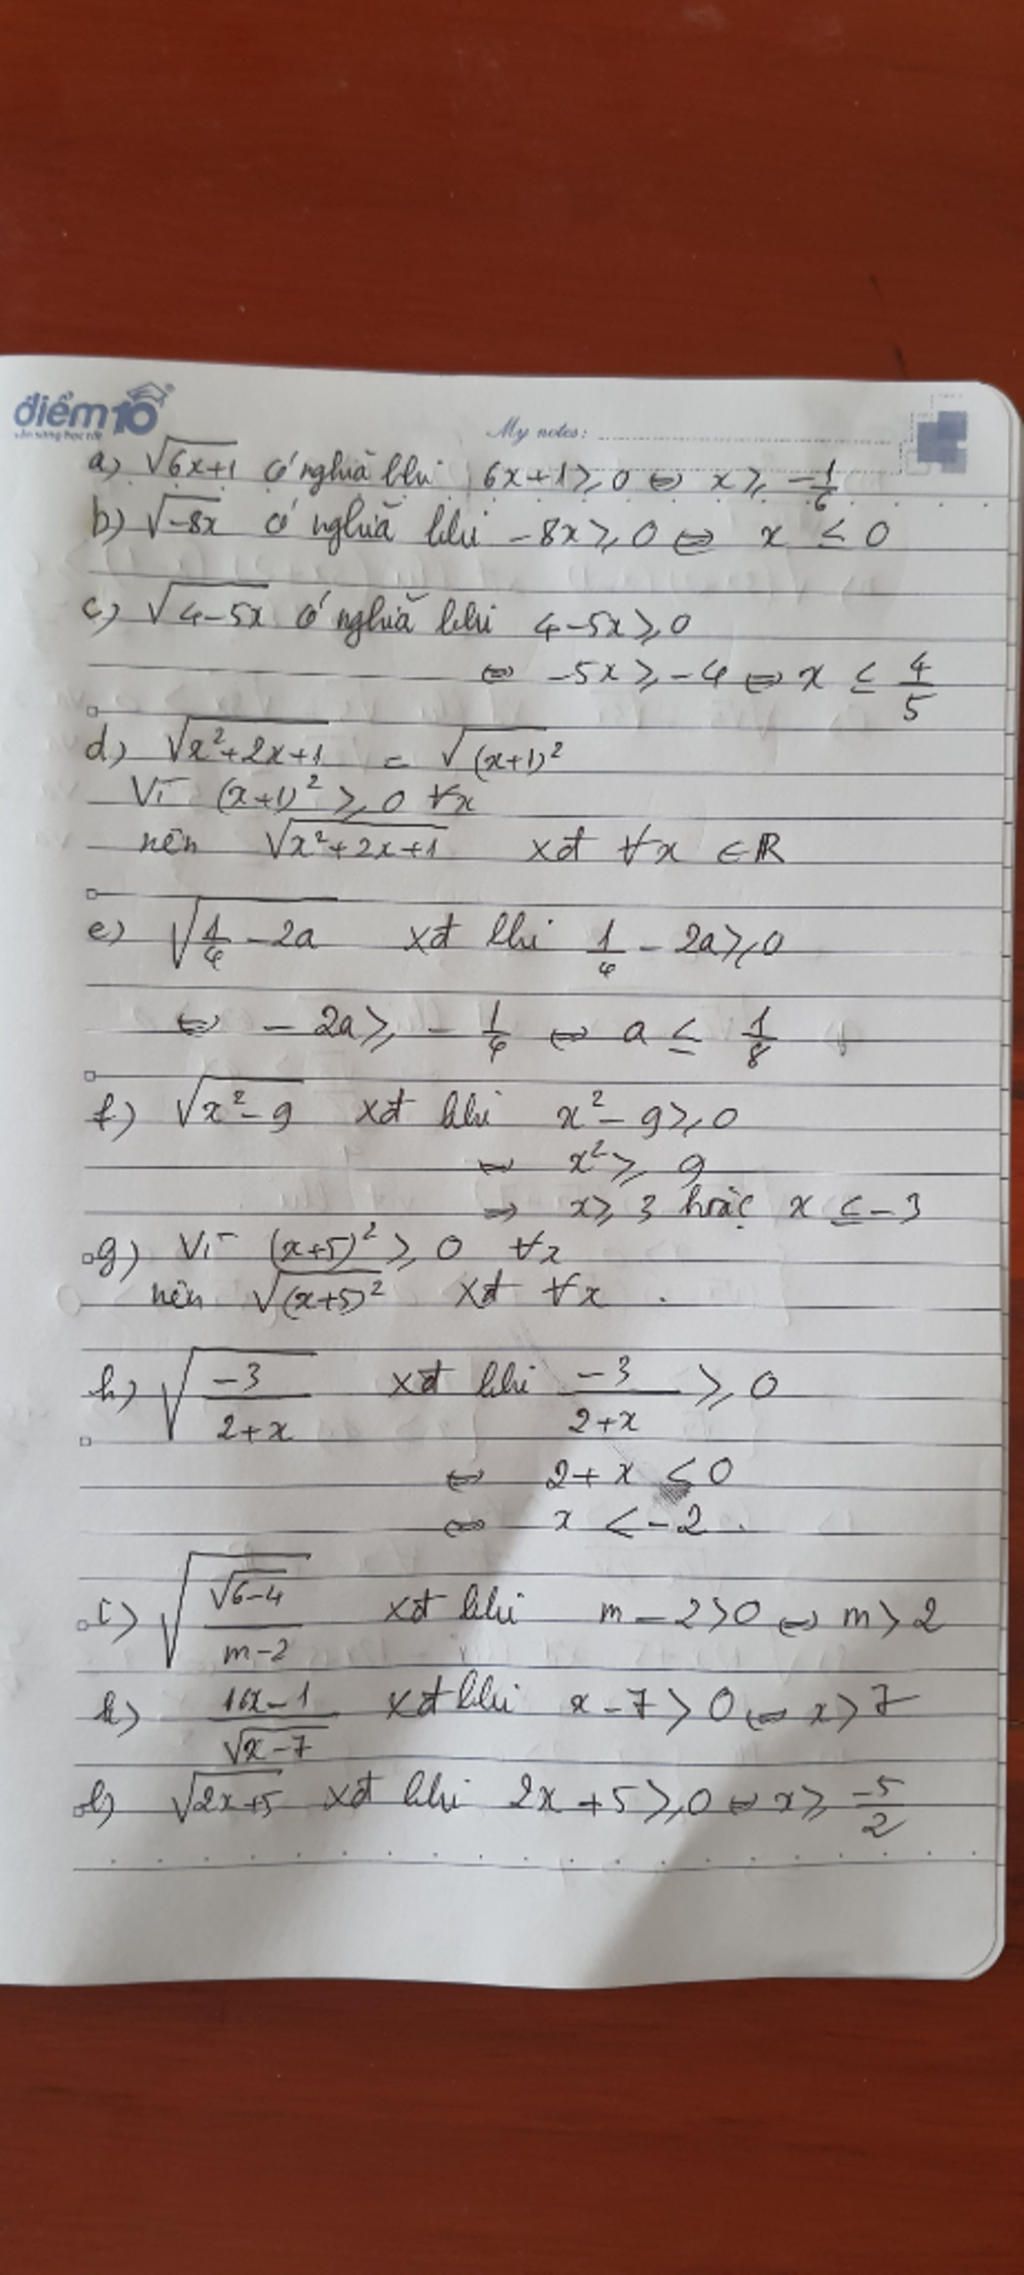 điểm10
My notes:
a) √6x+1 có nghĩa khi 6x+1 ⩾ 0 ⇔ x ⩾ -1/6
b) √-8x có nghĩa khi -8x ⩾ 0 ⇔ x ≤ 0
c) √4-5x có nghĩa khi 4-5x ⩾ 0
⇔ -5x ⩾ -4 ⇔ x ≤ 4/5
d) √x²+2x+1 = √(x+1)²
Vì (x+1)² ⩾ 0 ∀x
nên √x²+2x+1 xđ ∀x ∈ R
e) √1/4 - 2a xđ khi 1/4 - 2a ⩾ 0
⇔ - 2a ⩾ - 1/4 ⇔ a ≤ 1/8
f) √x²-9 xđ khi x²-9 ⩾ 0
⇔ x² ⩾ 9
⇒ x ⩾ 3 hoặc x ≤ -3
g) Vì (x+5)² ⩾ 0 ∀x
nên √(x+5)² xđ ∀x .
h) √-3/2+x xđ khi -3/2+x ⩾ 0
⇔ 2+x < 0
⇔ x < -2 .
i) √√6-4/m-2 xđ khi m-2 > 0 ⇔ m > 2
k) 16x-1/√x-7 xđ khi x-7 > 0 ⇔ x > 7
l) √2x+5 xđ khi 2x+5 ⩾ 0 ⇔ x ⩾ -5/2